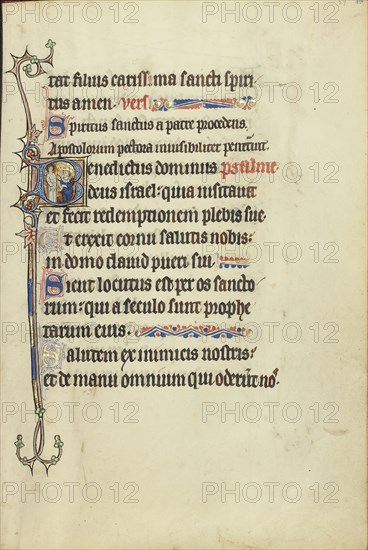 tat filius cariss ma sancti spiri
tus amen. vers
Spiritus sanctus a patre procedens.
Apostolorum pectora inuisibiliter penetrauit.
Benedictus dominus psalme
deus israel: quia uisitauit
et fecit redemptionem plebis sue
Et erexit cornu salutis nobis:
in domo dauid pueri sui.
Sicut locutus est per os sancto
rum: qui a seculo sunt prophe
tarum eius.
Salutem ex inimicis nostris:
et de manu omnium qui oderunt nos.
PHOTO 12